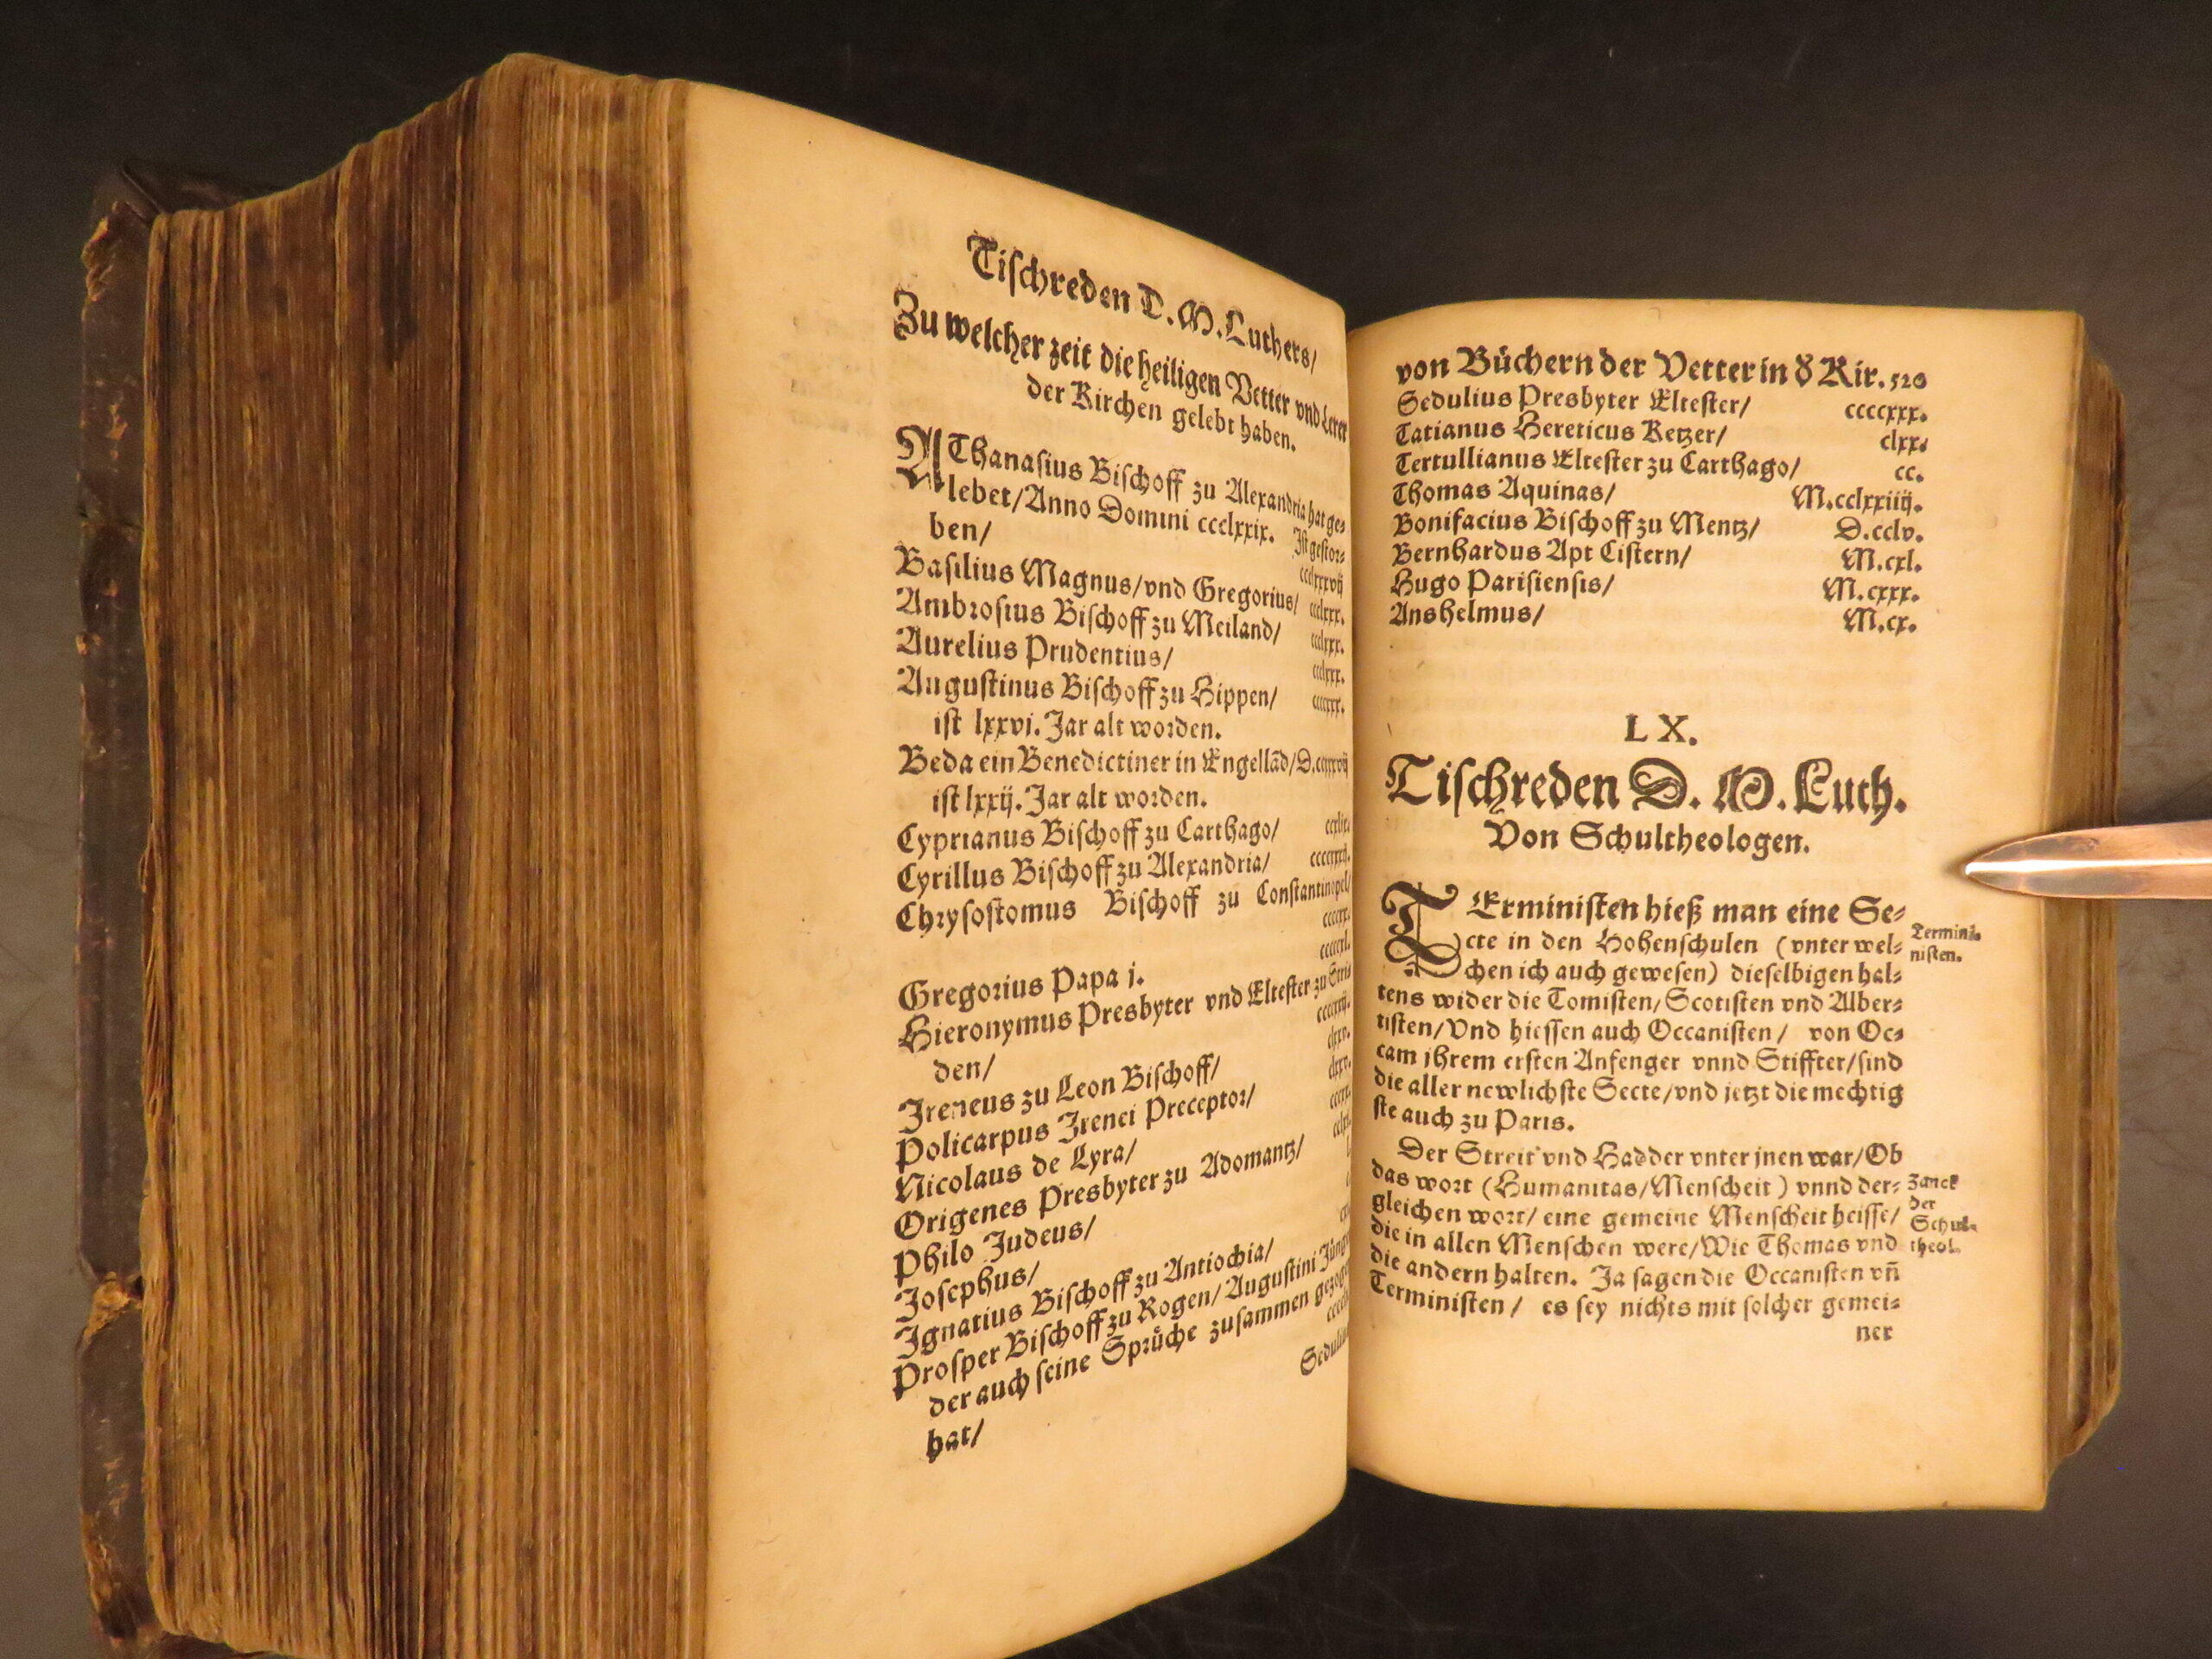 Tischreden D. M. Luthers/
Zu welcher zeit die heiligen Vetter vnd Lerer
der Kirchen gelebt haben.
AThanasius Bischoff zu Alexandria hat ge-
lebet/Anno Domini ccclxxix. Ist gestor-
ben/ ccclxxxvij
Basilius Magnus/vnd Gregorius/ ccclxxx.
Ambrosius Bischoff zu Meiland/ ccclxxx.
Aurelius Prudentius/ ccclxxx.
Augustinus Bischoff zu Hippen/ ccccxxx.
ist lxxvi. Jar alt worden.
Beda ein Benedictiner in Engellãd/
ist lxxij. Jar alt worden.
Cyprianus Bischoff zu Carthago/
Cyrillus Bischoff zu Alexandria/
Chrysostomus Bischoff zu Constantinopel/
Gregorius Papa j.
Hieronymus Presbyter vnd Eltester zu Stri
den/
Ireneus zu Leon Bischoff/
Policarpus Irenei Preceptor/
Nicolaus de Lyra/
Origenes Presbyter zu Adomantz/
Philo Judeus/
Josephus/
Ignatius Bischoff zu Antiochia/
Prosper Bischoff zu Rogen/ Augustini
der auch seine Sprüche zusammen
hat/
von Büchern der Vetter in d Kir. 520
Sedulius Presbyter Eltester/ ccccxxx.
Tatianus Hereticus Ketzer/ clxx.
Tertullianus Eltester zu Carthago/ cc.
Thomas Aquinas/ M.cclxxiiij.
Bonifacius Bischoff zu Mentz/ D.cclv.
Bernhardus Apt Cistern/ M.cxl.
Hugo Parisiensis/ M.cxxx.
Anshelmus/ M.cx.
LX.
Tischreden D. M. Luth.
Von Schultheologen.
TErministen hieß man eine Se-
cte in den Hohenschulen (vnter wel-
chen ich auch gewesen) dieselbigen hal-
tens wider die Tomisten/Scotisten vnd Alber-
tisten/Vnd hiessen auch Occanisten/ von Oc-
cam jhrem ersten Anfenger vnnd Stiffter/sind
die aller newlichste Secte/vnd jetzt die mechtig
ste auch zu Paris.
Termini-
nisten.
Der Streit vnd Hadder vnter jnen war/Ob
das wort (Humanitas/Menscheit) vnnd der-
gleichen wort/ eine gemeine Menscheit heisse/
die in allen Menschen were/Wie Thomas vnd
die andern halten. Ja sagen die Occanisten vñ
Terministen/ es sey nichts mit solcher gemei-
ner
Zanck
der
Schul-
theol.